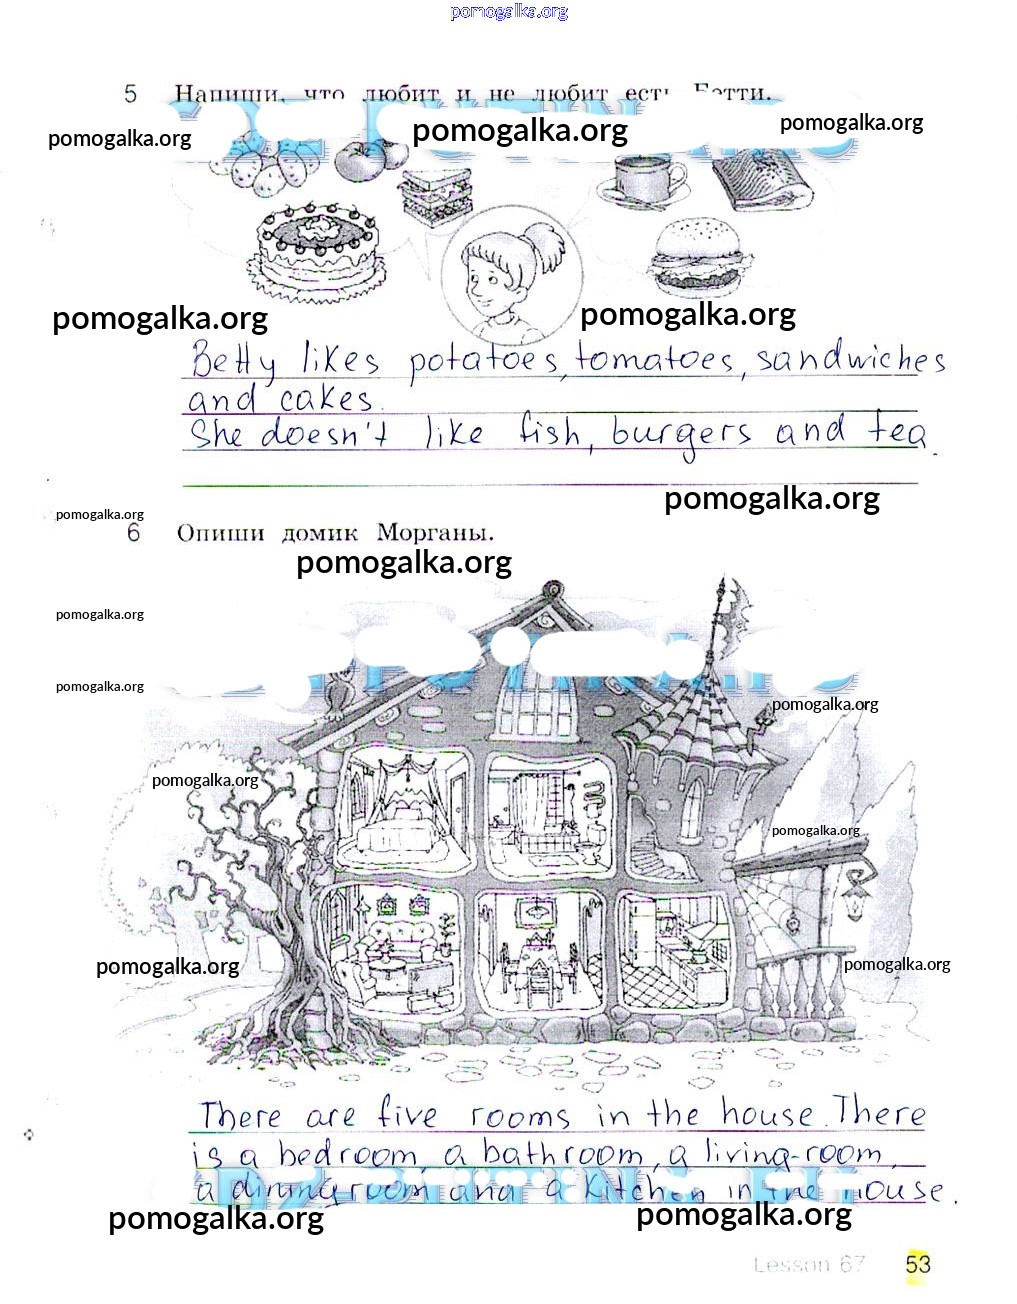 pomogalka.org
5 Напиши, что любит и не любит есть Бетти.
pomogalka.org
pomogalka.org
pomogalka.org
pomogalka.org
pomogalka.org
Betty likes potatoes, tomatoes, sandwiches
and cakes.
She doesn't like fish, burgers and tea.
pomogalka.org
pomogalka.org
6 Опиши домик Морганы.
pomogalka.org
pomogalka.org
pomogalka.org
pomogalka.org
pomogalka.org
pomogalka.org
pomogalka.org
pomogalka.org
There are five rooms in the house. There
is a bedroom, a bathroom, a living-room,
a dining room and a kitchen in the house.
pomogalka.org
pomogalka.org
Lesson 67 53